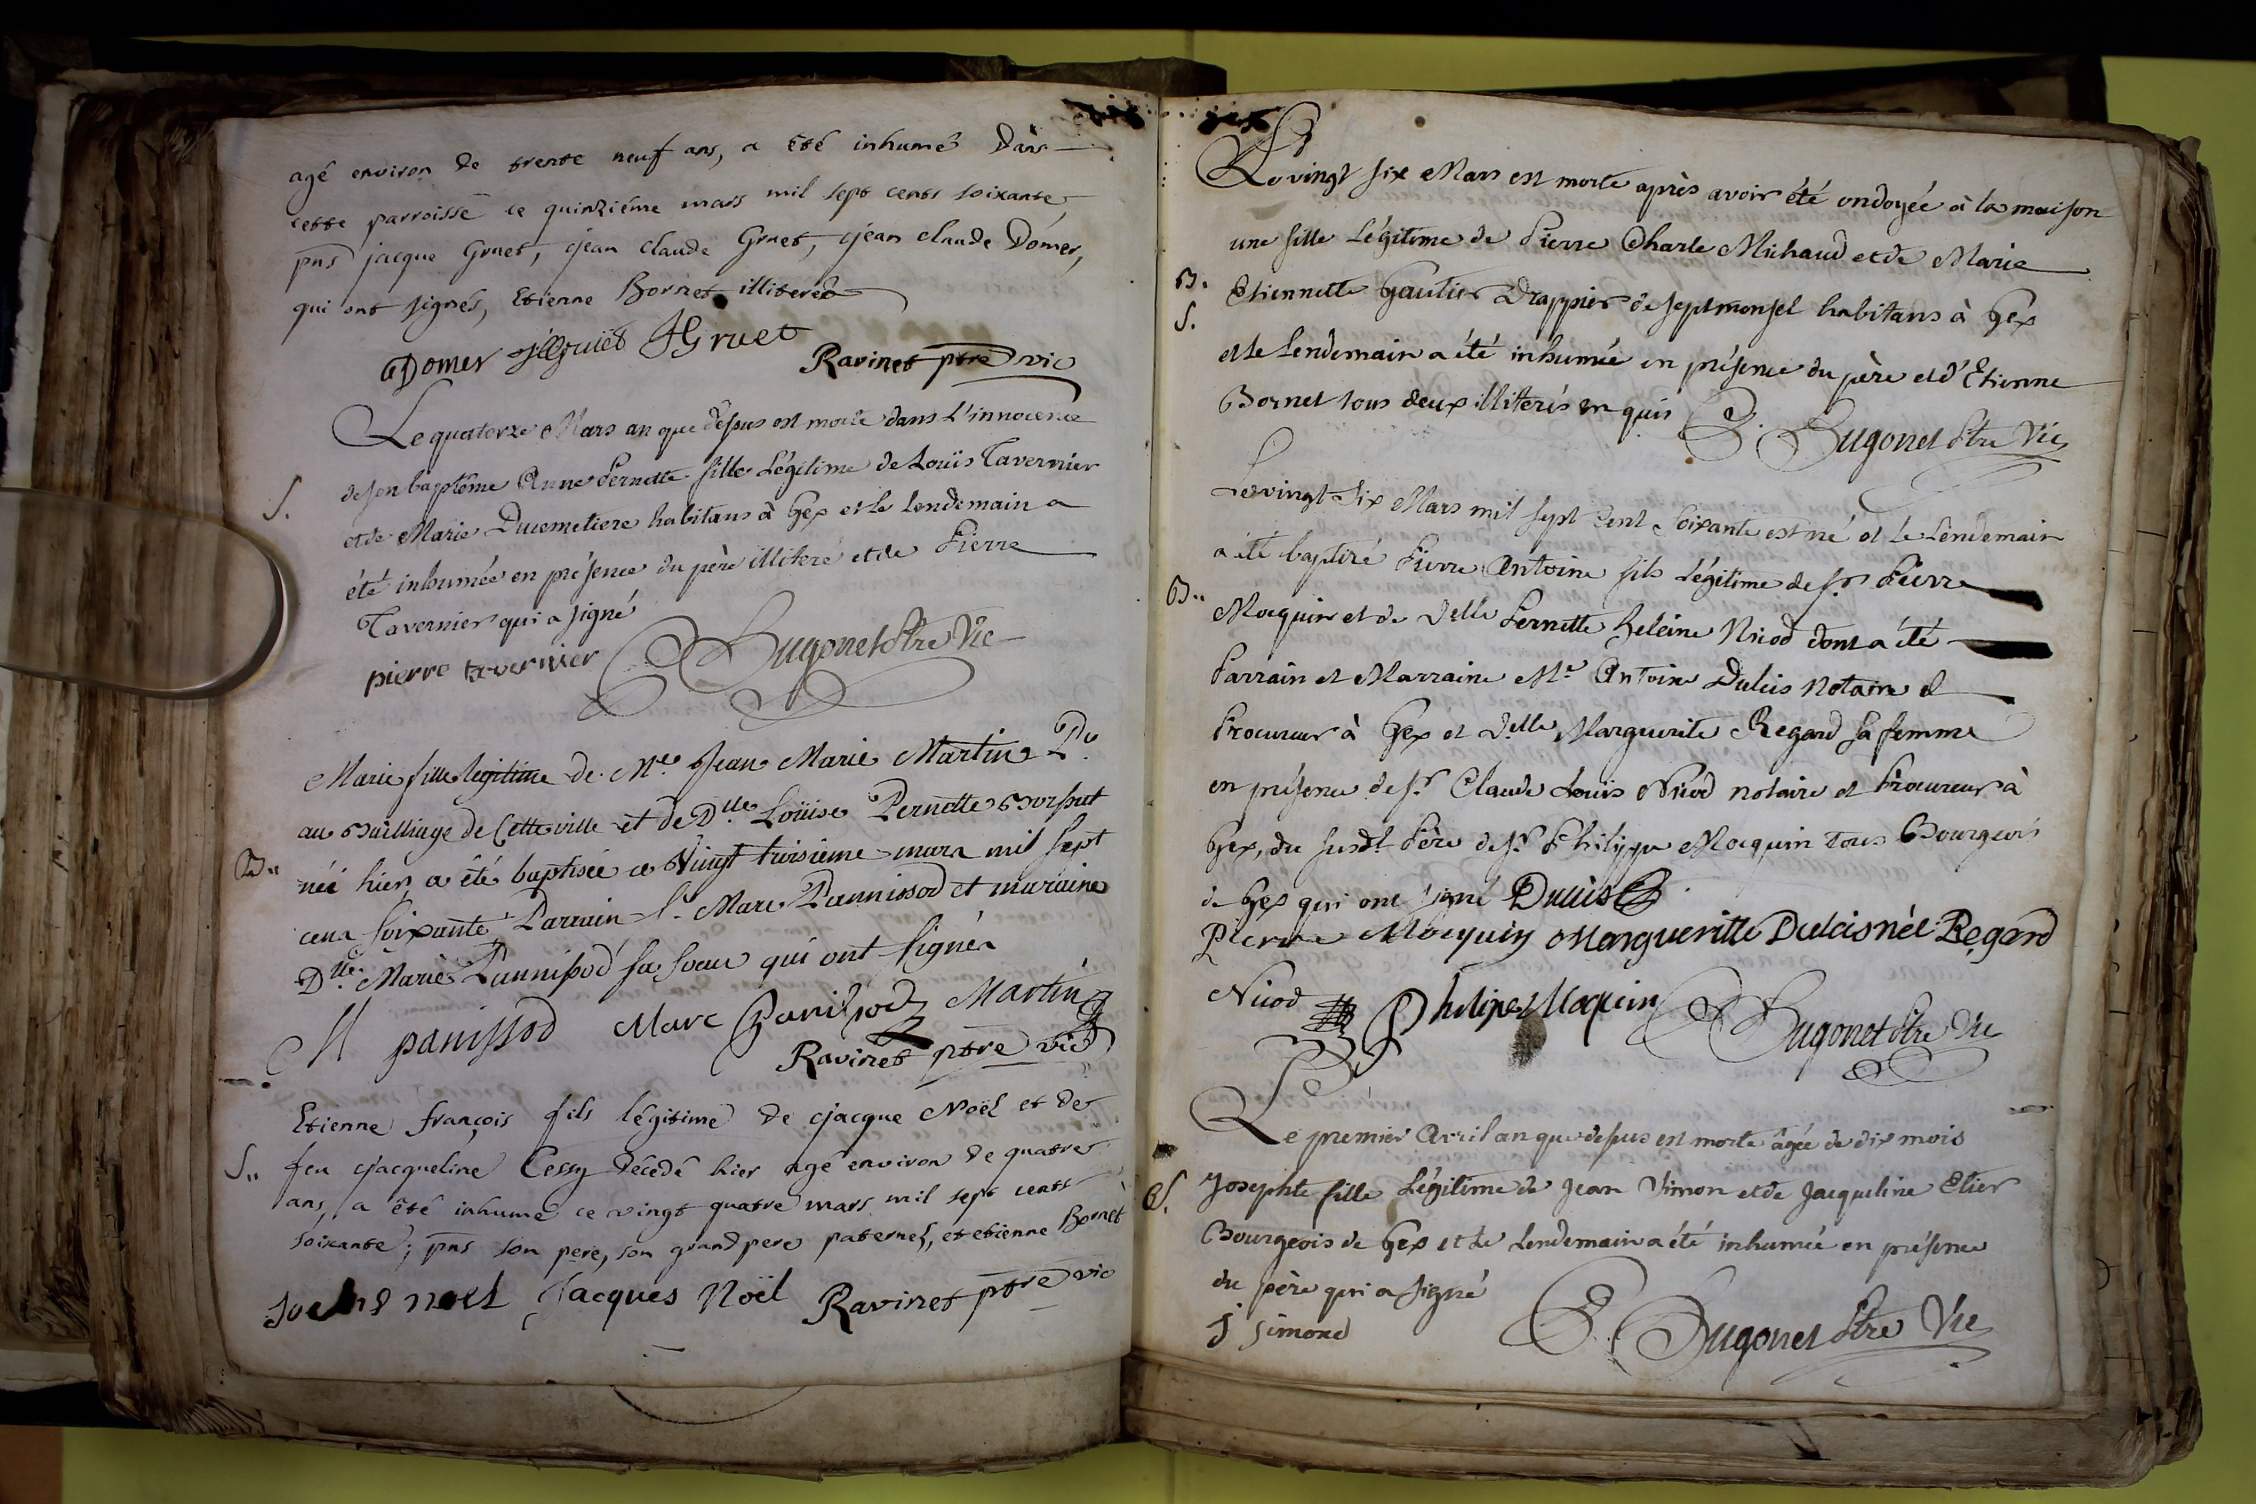 agé environ de trente neuf ans, a été inhumé Dans
cette parroisse ce quinziéme mars mil sept cents soixante,
pns jacque Gruet, jean claude Gruet, jean claude Domer,
qui ont signés, Etienne Bornet illiteré
Domer JGruet
Ravinet ptre vic
Le quatorze Mars an que dessus est morte dans L'innocence
S.
de son baptême Anne Pernette fille Légitime de Louïs Tavernier
et de Marie Ducemetiere habitans à Gex et le lendemain a
été inhumée en présence du père illiteré et de Pierre
Tavernier qui a signé
pierre tavernier Bugonet Ptre Vic
Marie fille legitime de Me. Jean Marie Martin Pr.
au Bailliage de Cette ville et de Dlle Loüise Pernette
B..
née hier a été baptisée ce vingt troisième mars mil sept
cens soixante Parrain Sr. Marc Pannissod et maraine
Dlle. Marie Pannissod sa soeur qui ont signés
M panissod Marc Panissod Martin
Ravinet ptre vic
Etienne françois fils légitime de jacque Noël et de
S..
feu jacqueline Cessy décédé hier agé environ de quatre
ans, a été inhumé ce vingt quatre mars mil sept cents
soixante; pns son pere, son grand pere paternel, et etienne Bornet
noel Jacques Noël Ravinet ptre vic
Le vingt six Mars est morte après avoir été ondoyée à la maison
une fille Légitime de Pierre Charle Michaud et de Marie
B.
S.
Etiennette Gautier Drappier de septmonsel habitans à Gex
et le lendemain a été inhumée en présence du père et d'Etienne
Bornet tous deux illiterés enquis
Bugonet Ptre Vic
Le vingt six Mars mil sept cent soixante est né et le lendemain
a été baptizé Pierre Antoine fils Légitime de sr. Pierre
B..
Mocquin et de Delle Pernette heleine Nicod dont a été
Parrain et Marraine Me Antoine Dulcis Notaire et
Procureur à Gex et Delle Marguerite Regard sa femme
en présence de sr. Claude Louis Nicod notaire et Procureur à
Gex, du susdt Père de sr. Philippe Mocquin tous Bourgeois
de Gex qui ont signé Dulcis
Pierre Mocquin Margueritte Dulcis née Regard
Nicod Philipe Moquin Bugonet Ptre Vic
Le premier Avril an que dessus est morte âgée de dix mois
S.
Josephte fille Légitime de Jean Simon et de Jacqueline Etier
Bourgeois de Gex et le lendemain a été inhumée en présence
du père qui a signé
j simond
Bugonet Ptre Vic